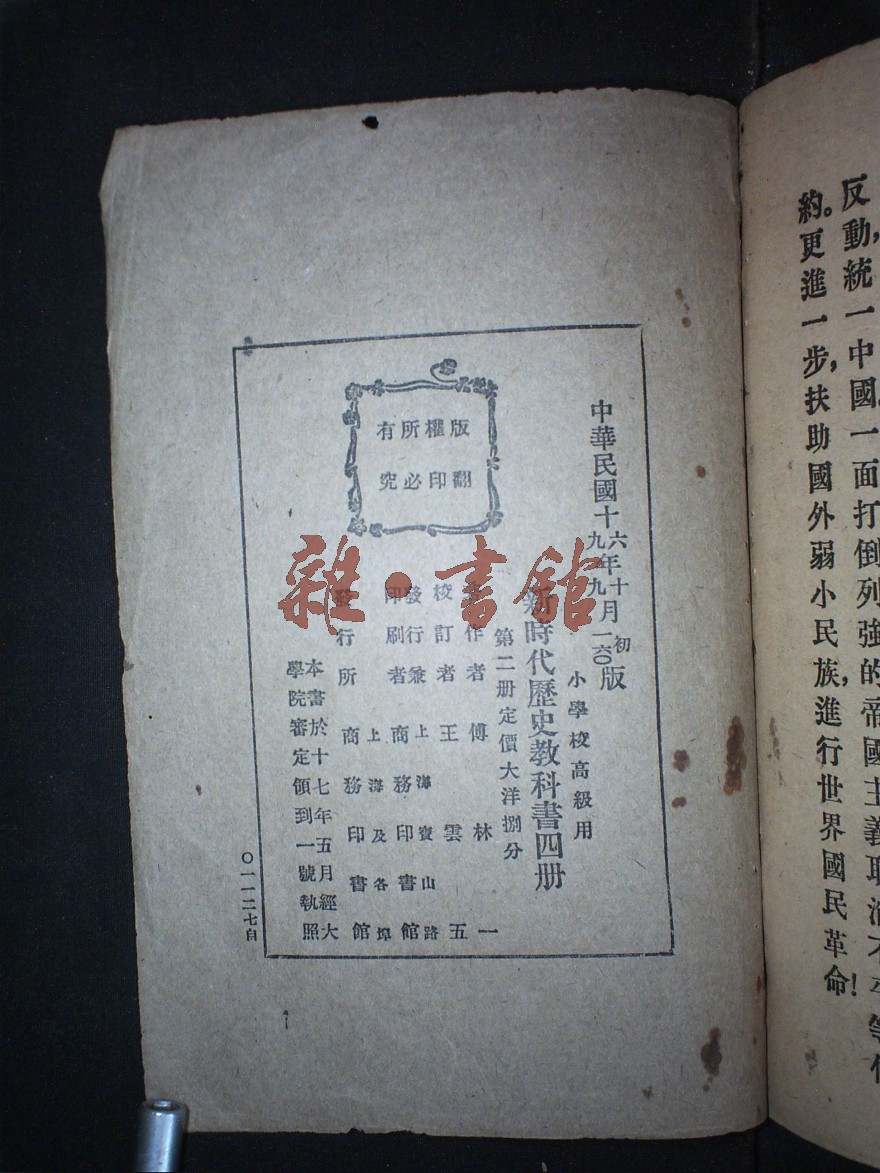 反動，統一中國。一面打倒列強的帝國主義取消不平等條
約。更進一步，扶助國外弱小民族，進行世界國民革命！
中華民國十六年十月初版
九年九月一六〇版
小學校高級用
新時代歷史教科書四册
第二册定價大洋捌分
作者 傅林一
校訂者 王雲五
發行兼 上海寶山路
印刷者 商務印書館
上海及各埠
發行所 商務印書館
本書於十七年五月經大
學院審定領到一號執照
版權所有
翻印必究
〇一一二七自
雜·書館